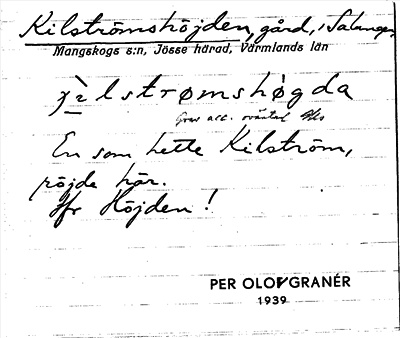 Kilströmshöjden, gård, i Salungen
Mangskogs s:n, Jösse härad, Värmlands län
χìlstrømshøgda
Grav acc. oväntad
En som hette Kilström,
röjde här.
Jfr Höjden!
PER OLOF GRANÉR
1939